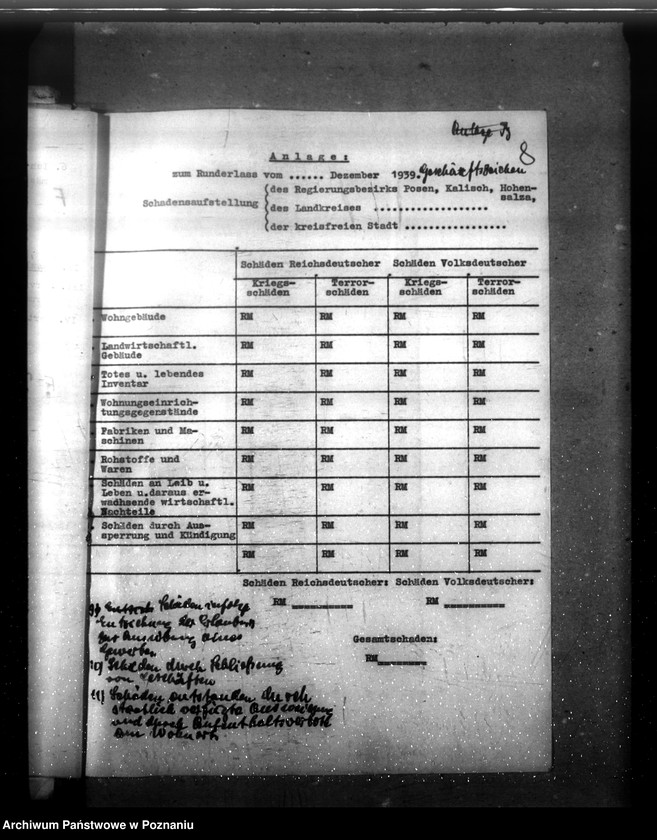 Anlage B
8
Anlage:
zum Runderlass vom ...... Dezember 1939. Geschäftszeichen
Schadensaufstellung
(des Regierungsbezirks Posen, Kalisch, Hohen-
salza,
(des Landkreises ...................
(der kreisfreien Stadt .................
Schäden Reichsdeutscher Schäden Volksdeutscher
Kriegs- Terror- Kriegs- Terror-
schäden schäden schäden schäden
Wohngebäude RM RM RM RM
Landwirtschaftl. RM RM RM RM
Gebäude
Totes u. lebendes RM RM RM RM
Inventar
Wohnungseinrich- RM RM RM RM
tungsgegenstände
Fabriken und Ma- RM RM RM RM
schinen
Rohstoffe und RM RM RM RM
Waren
Schäden an Leib u. RM RM RM RM
Leben u.daraus er-
wachsende wirtschaftl.
Nachteile
Schäden durch Aus- RM RM RM RM
sperrung und Kündigung
RM RM RM RM
Schäden Reichsdeutscher: Schäden Volksdeutscher:
RM RM
Gesamtschaden:
RM
9) Schäden infolge
Entziehung der Erlaubnis
zur Ausübung eines
Gewerbes
10) Schäden durch Schließung
von Geschäften
11) Schäden entstanden durch
staatlich verfügte Ausweisung
und durch Aufenthaltsverbote
am Wohnort
Archiwum Państwowe w Poznaniu